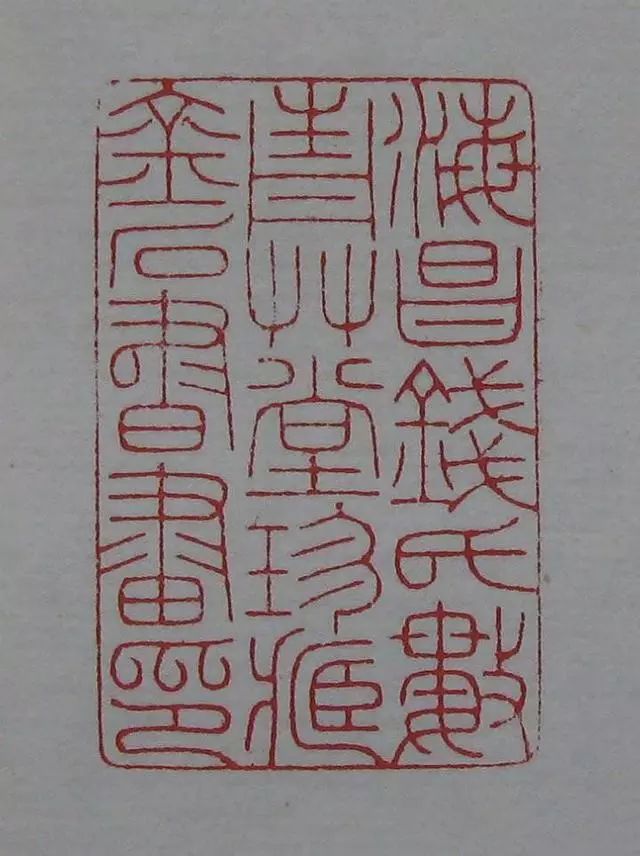 海昌錢氏數
青艸堂珍藏
金石書畫印